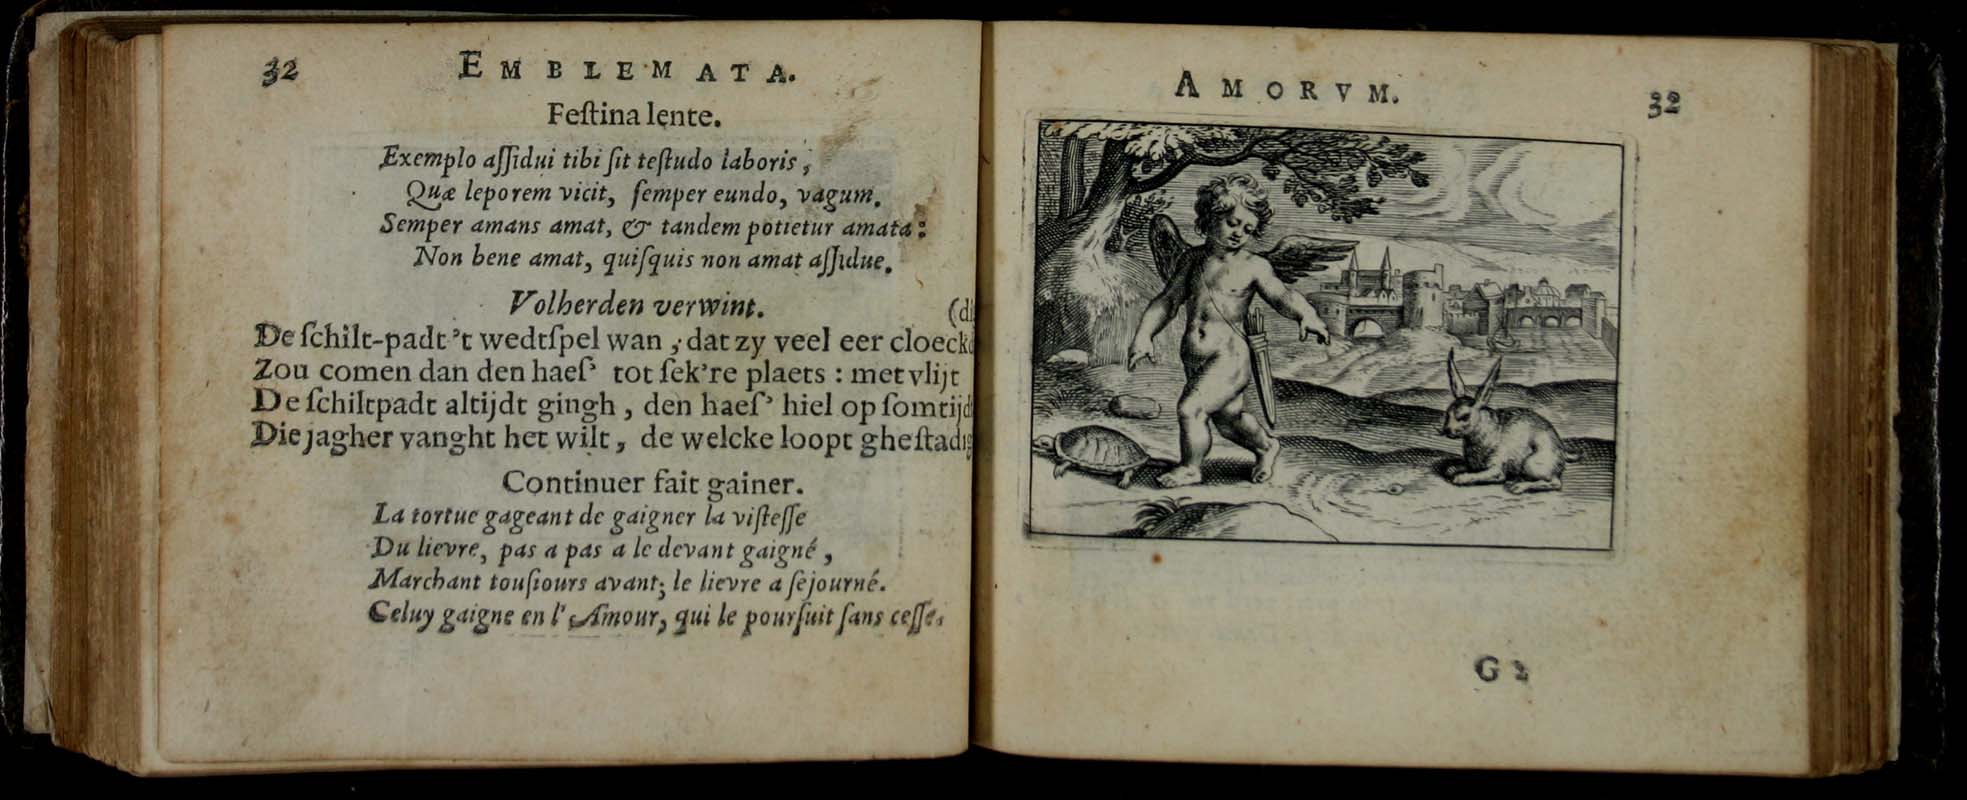 32
EMBLEMATA.
Feſtina lente.
Exemplo aſſidui tibi ſit teſtudo laboris,
Quæ leporem vicit, ſemper eundo, vagum.
Semper amans amat, & tandem potietur amata:
Non bene amat, quiſquis non amat aſſidue.
Volherden verwint.
De ſchilt-padt 't wedtſpel wan, dat zy veel eer
Zou comen dan den haeſ' tot ſek're plaets: met vlijt
De ſchiltpadt altijdt gingh, den haeſ' hiel op
Die jagher vanght het wilt, de welcke loopt
Continuer fait gainer.
La tortue gageant de gaigner la viſteſſe
Du lievre, pas a pas a le devant gaigné,
Marchant touſiours avant; le lievre a ſejourné.
Celuy gaigne en l'Amour, qui le pourſuit ſans ceſſe.
AMORVM.
32
G 2